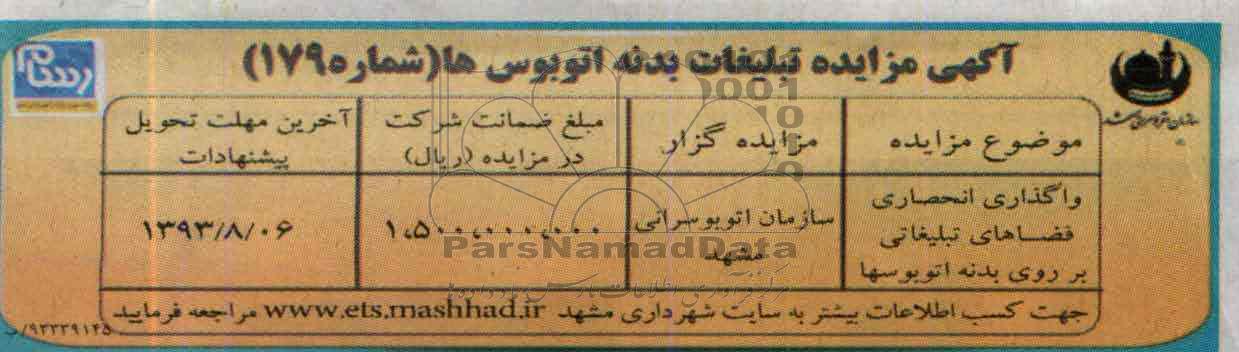 آگهی مزایده تبلیغات بدنه اتوبوس ها(شماره۱۷۹)
رسام
موضوع مزایده
مزایده گزار
مبلغ ضمانت شرکت
در مزایده (ریال)
آخرین مهلت تحویل
پیشنهادات
واگذاری انحصاری
فضاهای تبلیغاتی
بر روی بدنه اتوبوسها
سازمان اتوبوسرانی
مشهد
۱،۵۰۰،۰۰۰،۰۰۰
۱۳۹۳/۸/۰۶
ParsNamadData
جهت کسب اطلاعات بیشتر به سایت شهرداری مشهد www.ets.mashhad.ir مراجعه فرمایید.